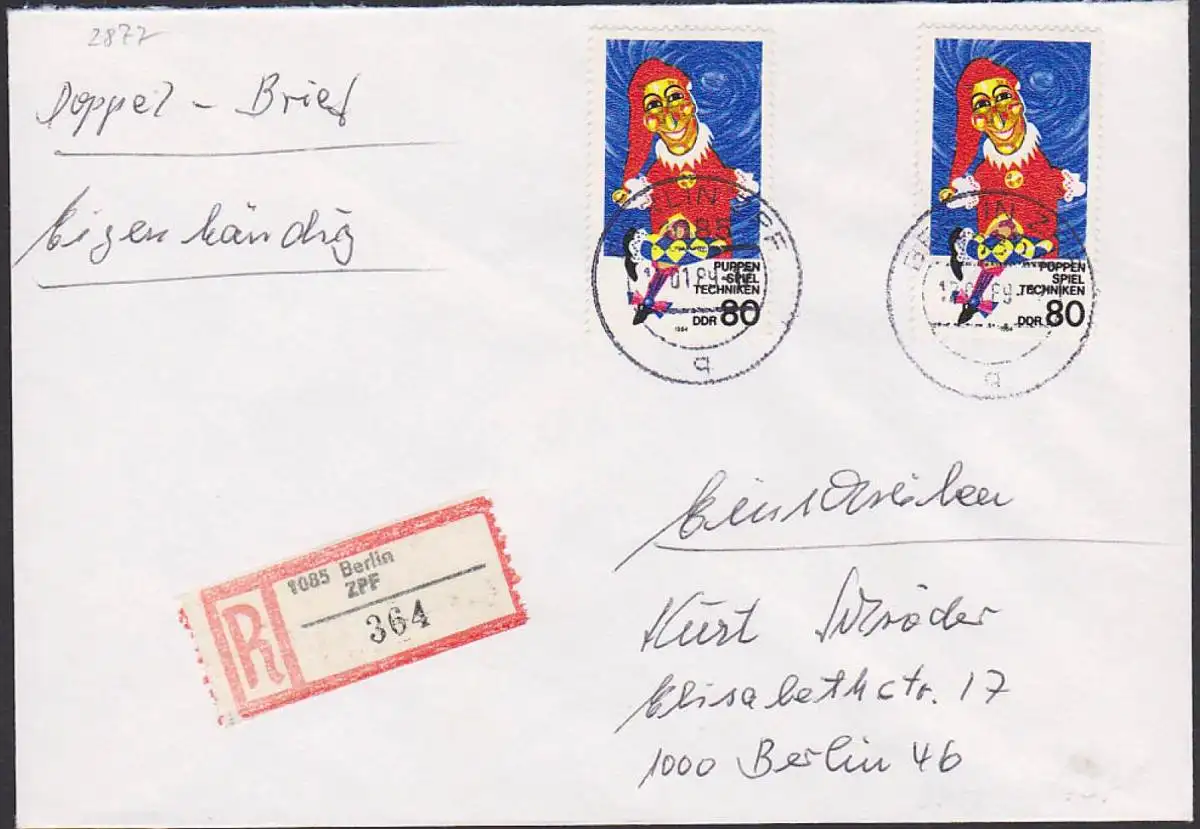 2877
Doppel - Brief
Eigenhändig
PUPPEN
SPIEL
TECHNIKEN
DDR 80
1984
PUPPEN
SPIEL
TECHNIKEN
DDR 80
1984
BERLIN ZPF
1085
01.89
q
BERLIN
89
q
Einschreiben
R
1085 Berlin
ZPF
364
Kurt Schröder
Elisabethstr. 17
1000 Berlin 46